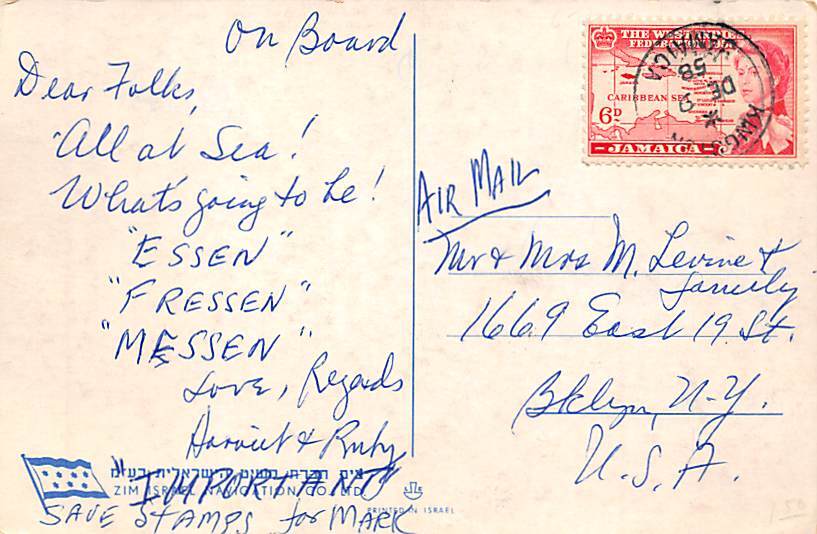 On Board
Dear Folks,
All at Sea!
What's going to be!
"ESSEN"
"FRESSEN"
"MESSEN"
Love, Regards
Harriet & Ruby
"IMPORTANT"
SAVE STAMPS for MARK
צים חברת השיט הישראלית בע"מ
ZIM ISRAEL NAVIGATION CO. LTD.
PRINTED IN ISRAEL
THE WEST INDIES
FEDERATION 1958
CARIBBEAN SEA
6D
JAMAICA
KINGSTON
JAMAICA
DE
58
AIR MAIL
Mr & Mrs M. Levine &
family
1669 East 19 St.
Bklyn, N-Y.
U.S.A.
150